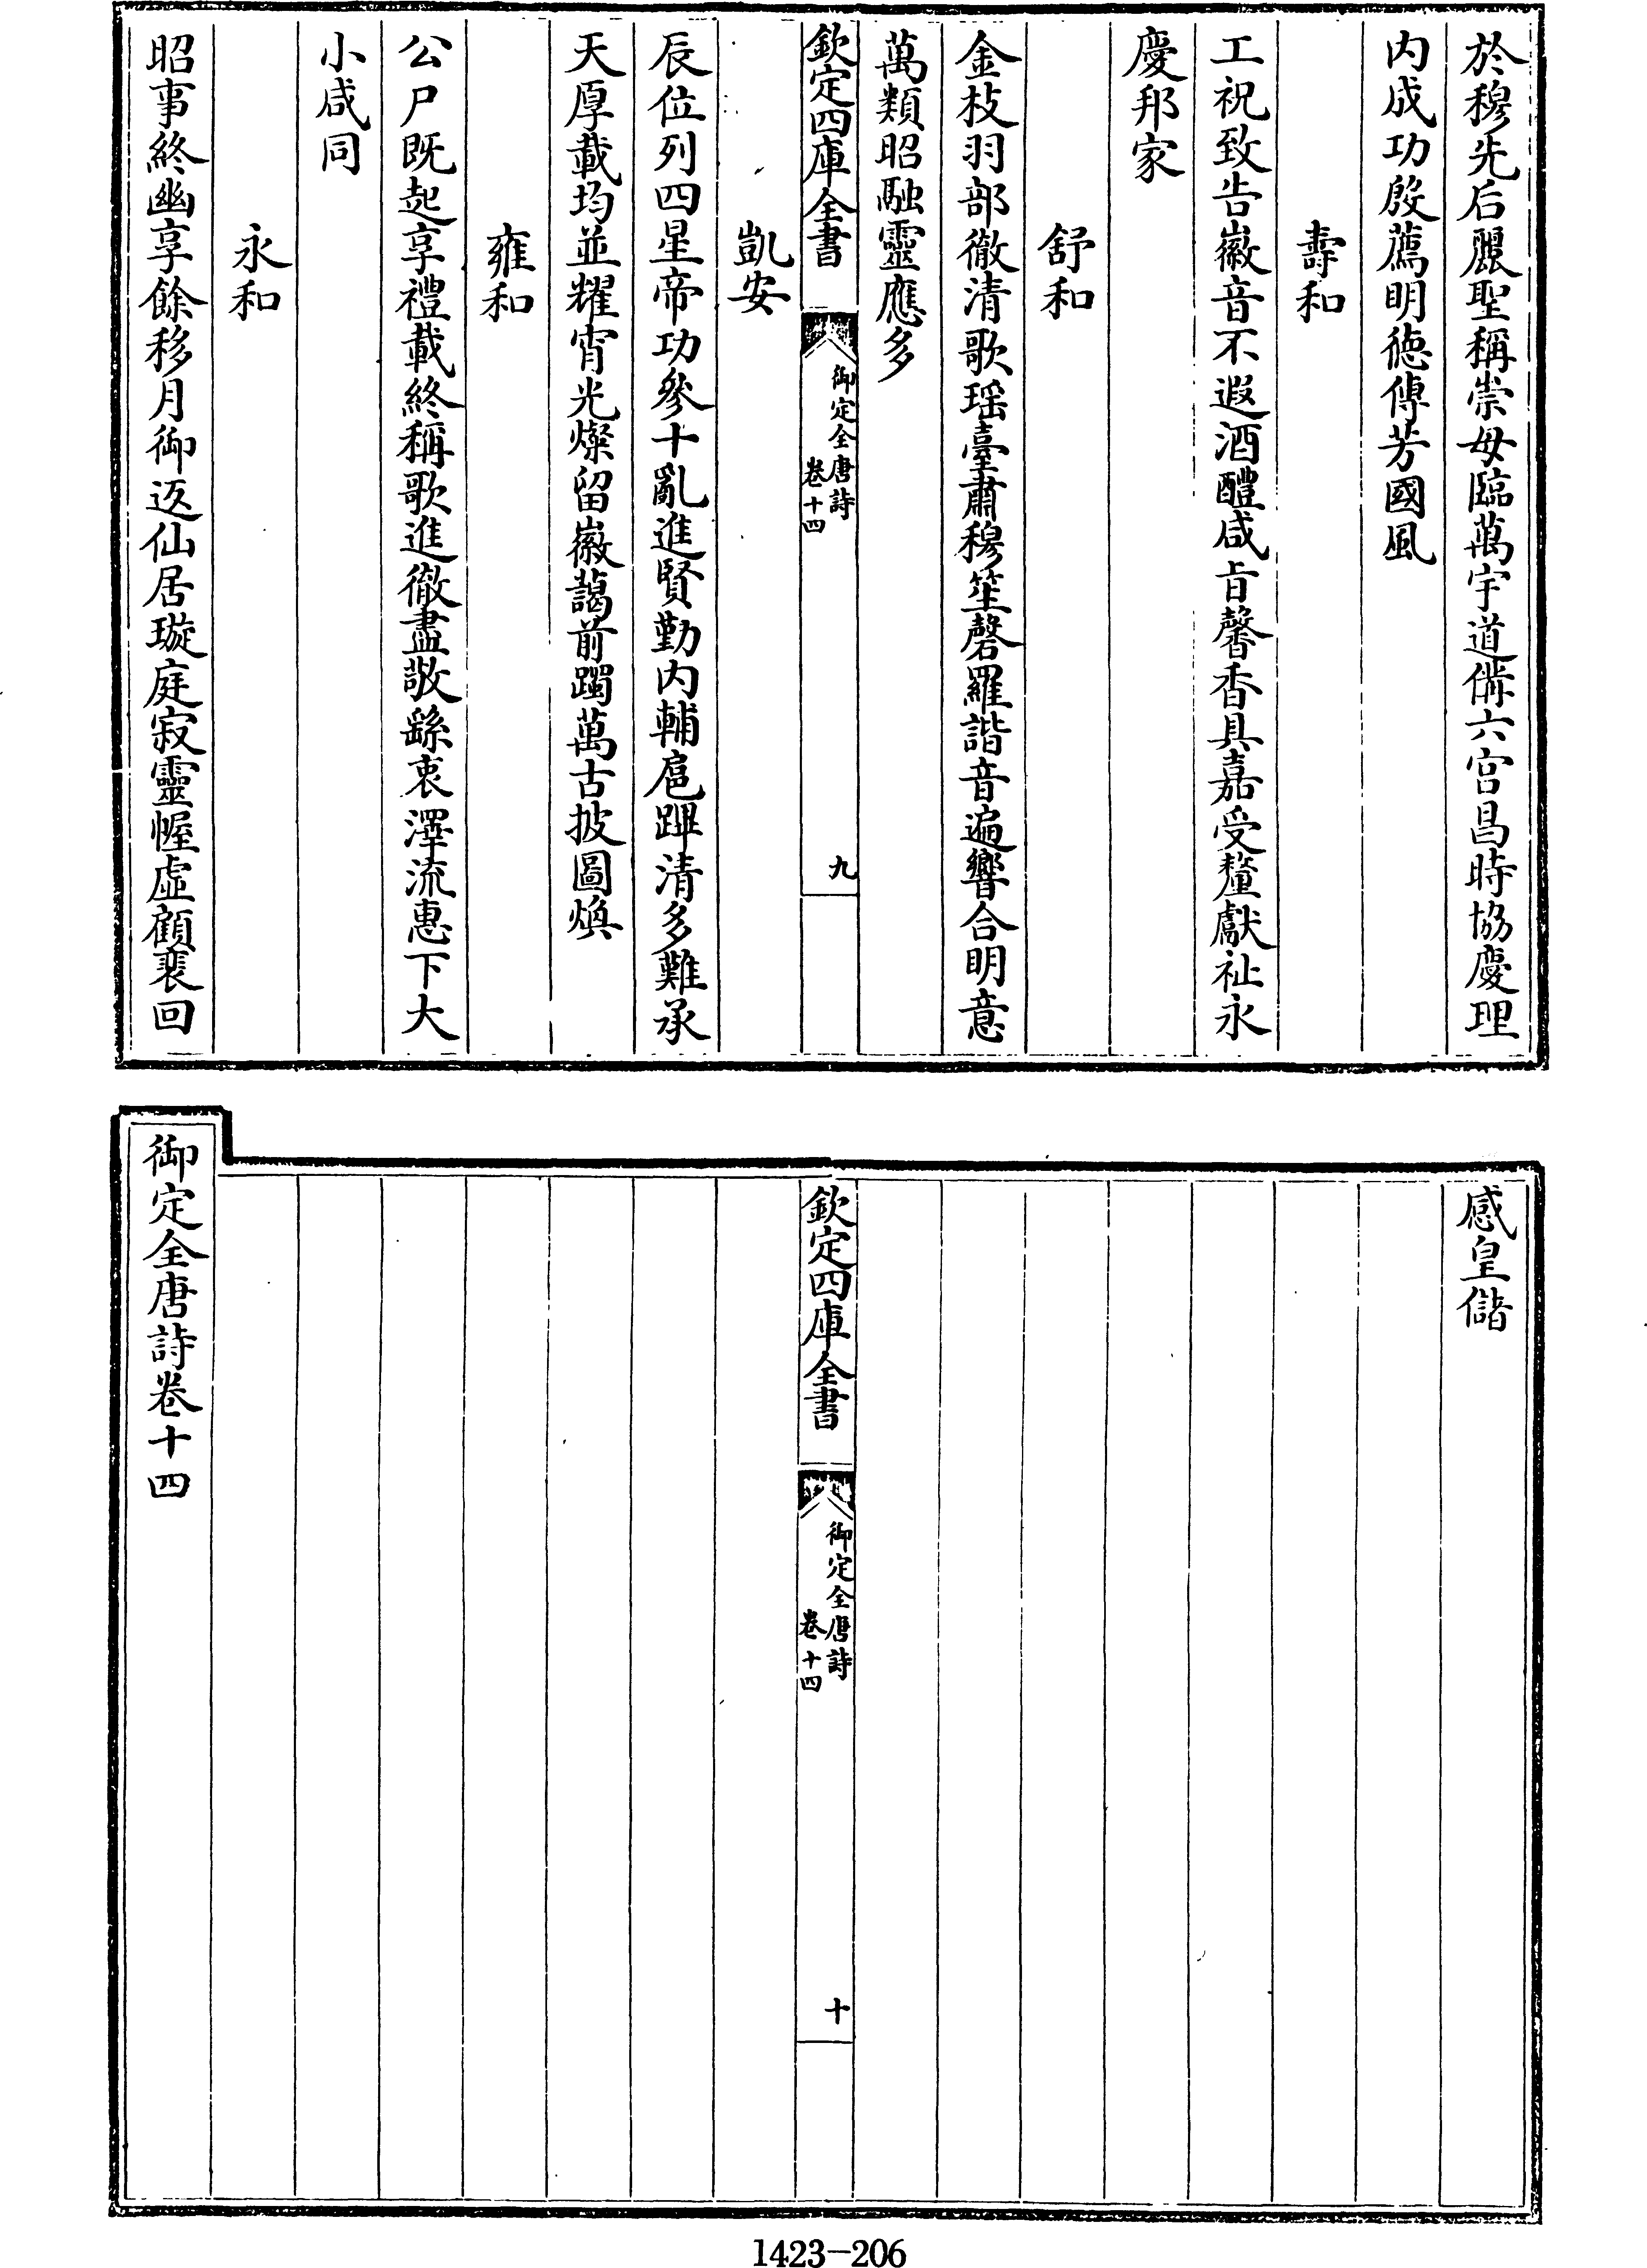 於穆先后麗聖稱崇母臨萬宇道備六宫昌時協慶理
内成功殷薦明徳傳芳國風
壽和
工祝致告徽音不遐酒醴咸㫖馨香具嘉受釐獻祉永
慶邦家
舒和
金枝羽部徹清歌瑶臺肅穆笙磬羅諧音遍響合明意
萬類昭融靈應多
欽定四庫全書
御定全唐詩
卷十四
九
凱安
辰位列四星帝功參十亂進賢勤内輔扈蹕清多難承
天厚載均並耀宵光燦留徽藹前躅萬古披圖焕
雍和
公尸既起享禮載終稱歌進徹盡敬繇衷澤流惠下大
小咸同
永和
昭事終幽享餘移月御返仙居璇庭寂靈幄虚顧裴回
感皇儲
欽定四庫全書
御定全唐詩
卷十四
十
御定全唐詩卷十四
1423-206